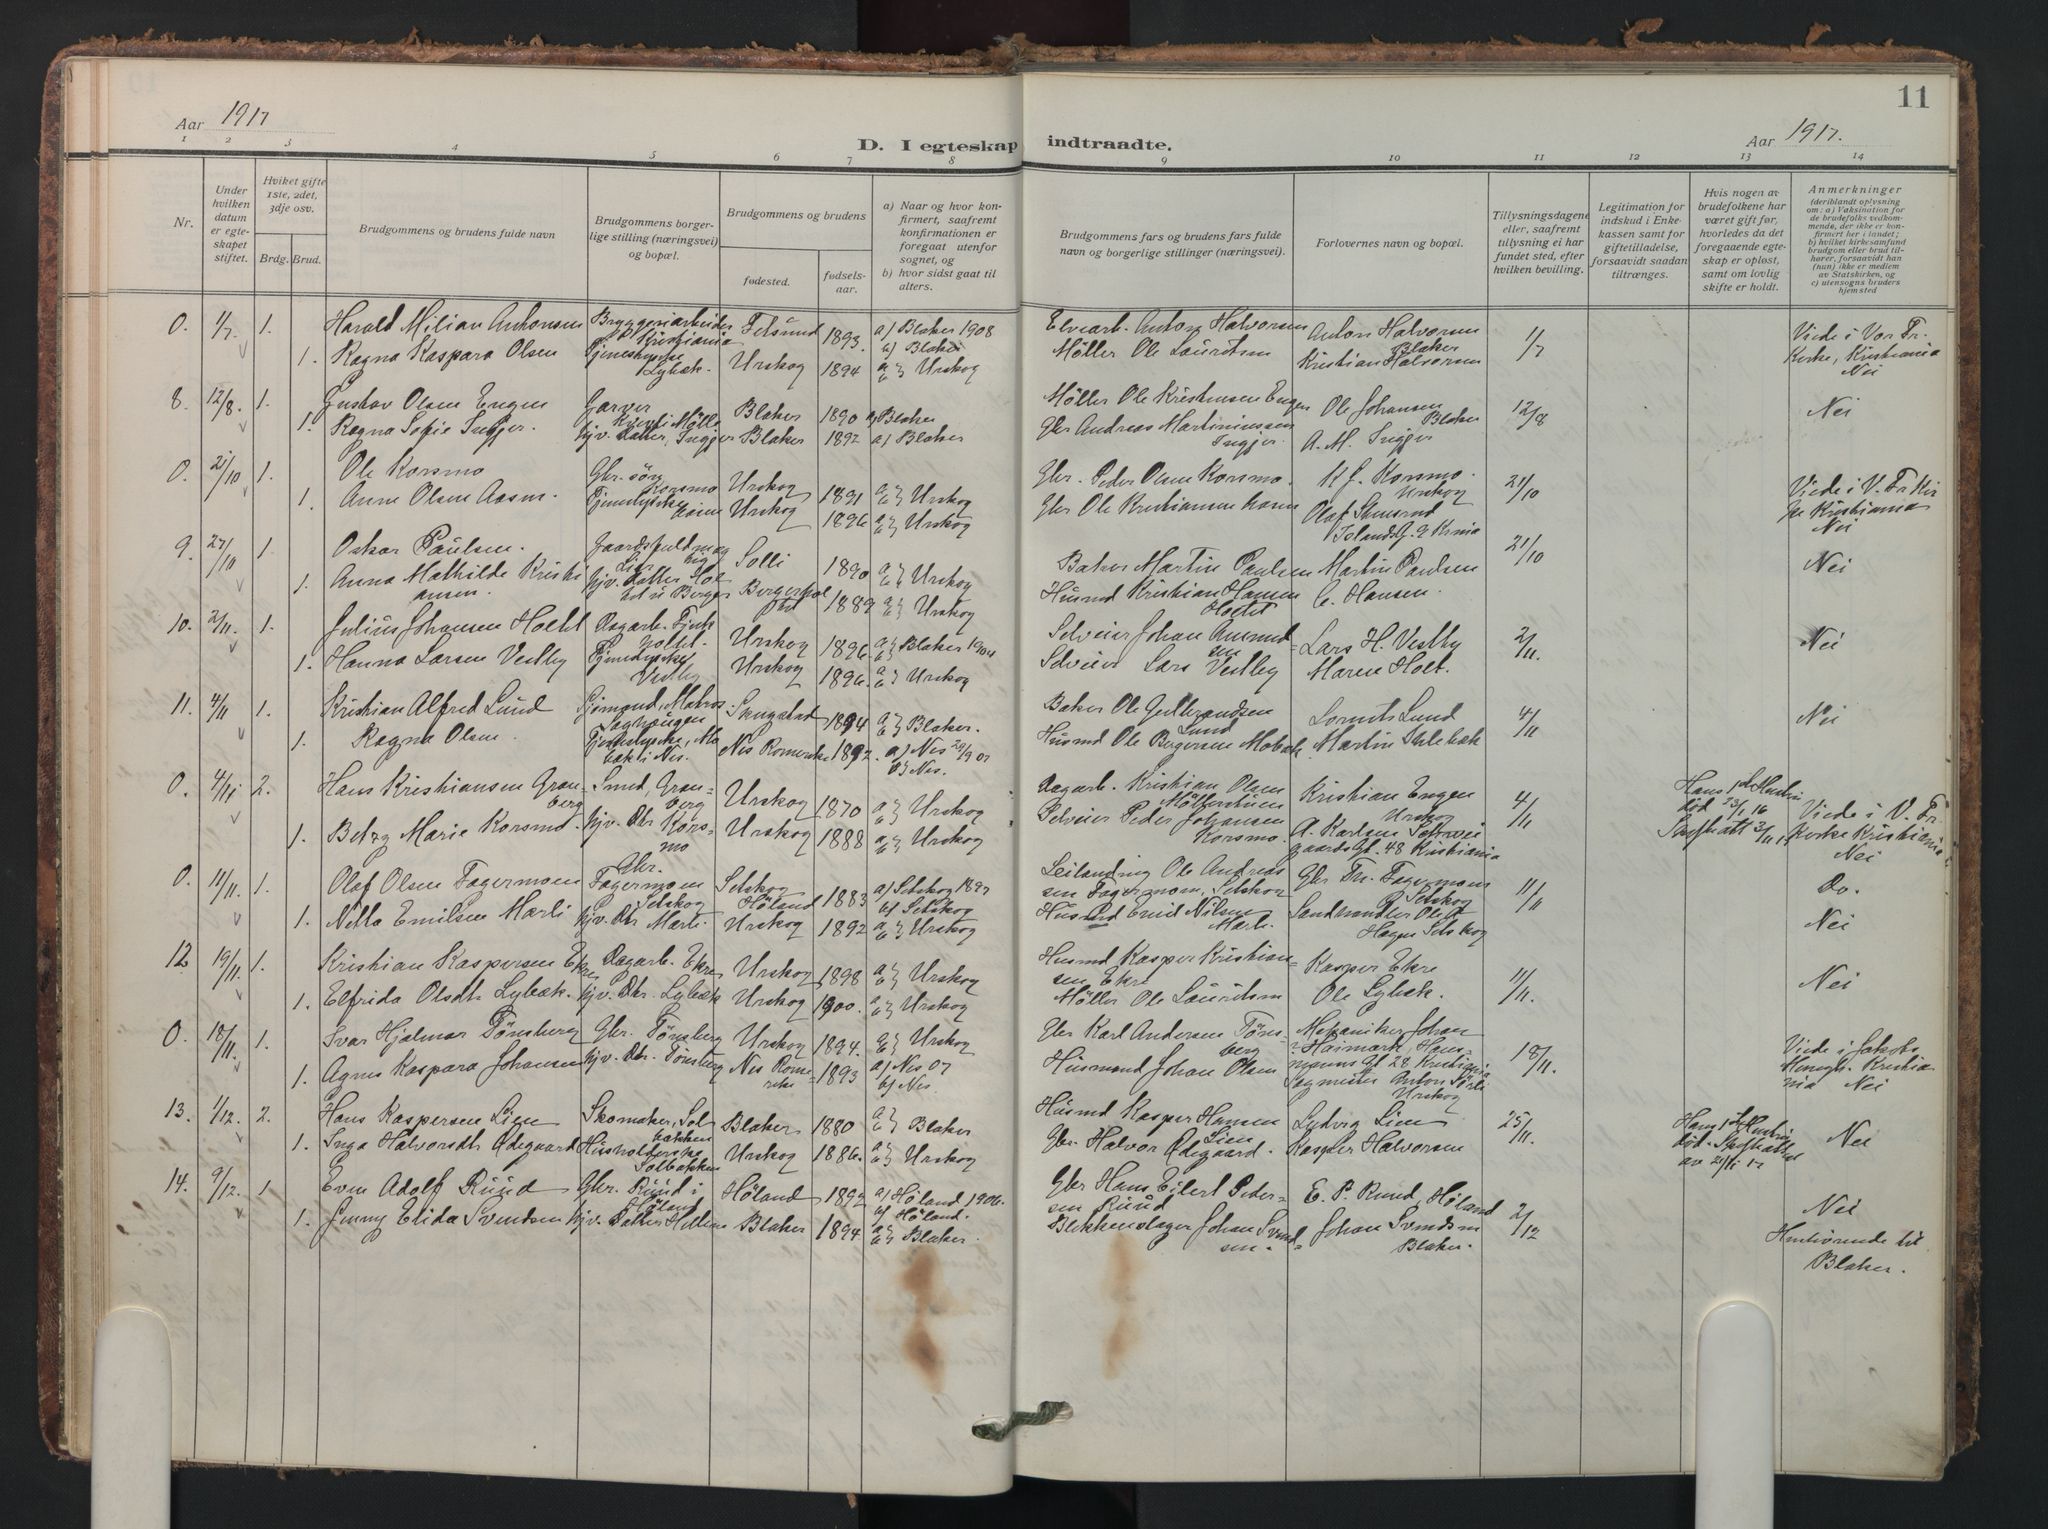 11
Aar 1917
Aar 1917.
D. I egteskap indtraadte.
1 2 3 4 5 6 7 8 9 10 11 12 13 14
Nr.
Under hvilken datum er egteskapet stiftet.
Hviket gifte 1ste, 2det, 3dje osv.
Brdg. Brud.
Brudgommens og brudens fulde navn
Brudgommens borgerlige stilling (næringsvei) og bopæl.
Brudgommens og brudens
fødested.
fødselsaar.
a) Naar og hvor konfirmert, saafremt konfirmationen er foregaat utenfor sognet, og
b) hvor sidst gaat til alters.
Brudgommens fars og brudens fars fulde navn og borgerlige stillinger (næringsvei).
Forlovernes navn og bopæl.
Tillysningsdagene eller, saafremt tillysning ei har fundet sted, efter hvilken bevilling.
Legitimation for indskud i Enkekassen samt for giftetilladelse, forsaavidt saadan tiltrænges.
Hvis nogen av brudefolkene har været gift før, hvorledes da det foregaaende egteskap er opløst, samt om lovlig skifte er holdt.
Anmerkninger (deriblandt oplysning om: a) Vaksination for de brudefolks vedkommende, der ikke er konfirmert her i landet; b) hvilket kirkesamfund brudgom eller brud tilhører, forsaavidt han (hun) ikke er medlem av Statskirken, og c) utensogns bruders hjemsted
0. 1/7 1. Harald Milian Antonsen Bryggeriarbeider Kristiania Fetsund 1893. a) Blaker 1908 b) Blaker Elvearb. Anton Halvorsen Anton Halvorsen Blaker 1/7 Viede i Vor Fr. Kirke, Kristiania
1. Ragna Kaspara Olsen Tjenestepike Lybæk. Urskog 1894 a b} Urskog Møller Ole Lauritsen Kristian Halvorsen Nei
8. 12/8. 1. Gustav Olsen Engen Garver Blaker 1890 a) Blaker Møller Ole Kristensen Engen Ole Johansen Blaker 12/8 Nei
1. Ragna Sofie Ingjer. hjv. datter, Ingjer Blaker 1892 a) Blaker Gbr Andreas Martiniussen Ingjer. A. M. Ingjer
0. 21/10 1. Ole Korsmo Gbr. søn Korsmo Urskog 1891 a b} Urskog Gbr. Peder Olsen Korsmo. K. J. Korsmo. Urskog 21/10 Viede i V. Fr Kirke Kristiania
1. Anne Olsen Aasen. Tjenestepike Aasen Urskog 1896 a b} Urskog Gbr Ole Kristiansen Aasen Olaf Nei
9. 27/10 1. Oskar Paulsen. Gaardsfuldmægtig Lier Solli 1890 a b} Urskog Baker Martin Paulsen Martin Paulsen 21/10 Nei
1. Anna Mathilde Kristiansen. hjv. datter 1889 a b} Urskog Husmd Kristian Hansen C. Hansen.
10. 2/11. 1. Julius Johansen Holtet Dagarb. Holtet. Urskog 1896 a b} Blaker 1904 Selveier Johan Amundsen Lars H. Vestby 2/11. Nei
1. Hanna Larsen Vestby Tjenestepike Vestby Urskog 1896. a b} Urskog Selveier Lars Vestby Maren Holt.
11. 4/11 1. Kristian Alfred Lund Sjømand, Matros Haghaugen 1894 a b} Blaker. Baker Ole Gulbrandsen Lund Lorents Lund 4/11 Nei
1. Ragna Olsen. Tjenestepike, Mobæk i Nes. Nes Romerike 1892. a) Nes 29/9 07 b) Nes. Husmd Ole Bergersen Mobæk Martin
0. 4/11 2. Hans Kristiansen Granberg Smed, Granberg Urskog 1870 a b} Urskog Dagarb. Kristian Olsen Kristian Engen Urskog 4/11 Hans 1ste Hustru død 23/7 16 Viede i V. Fr. Kirke Kristiania
1. Betzy Marie Korsmo. hjv. Dtr Korsmo Urskog 1888 a b} Urskog Selveier Peder Johansen Korsmo. A. Karlsen gaards Gt. 48 Kristiania Nei
0. 11/11. 1. Olaf Olsen Fagermoen Gbr. Fagermoen Setskog Setskog Høland 1883 a) Setskog 1897 b) Setskog Leilænding Ole Andreassen Fagermoen, Setskog Gbr Tr. Fagermoen Setskog 11/11 Do.
1. Netta Emilsen Mærli hjv. Dtr Mærli Urskog 1892 a b} Urskog Husmd Emil Nilsen Mærli. Sandhandler Hagen Setskog Nei
12 19/11. 1. Kristian Kaspersen Ekre Dagarb. Ekre Urskog 1898 a b} Urskog Husmd Kasper Kristiansen Ekre Kasper Ekre 11/11. Nei
1. Elfrida Olsdtr Lybæk. hjv. Dtr. Lybæk Urskog 1900. a b} Urskog Møller Ole Lauritsen Ole Lybæk.
0. 18/11. 1. Ivar Hjalmar Tønsberg Gbr. Tønsberg Urskog 1894. a b} Urskog Gbr Karl Andersen Tønsberg Mekaniker Johan Haimark, Hansmanns Gt 28 Kristiania 18/11. Viede i Jakobs Menigh. Kristiania
1. Agnes Kaspara Johansen hjv. Dtr. Tønsberg Nes Romerike 1893 a) Nes 07 b) Nes Husmand Johan Olsen Sagmester Anton Sørli Urskog Nei
13. 1/12. 2. Hans Kaspersen Lien Skomaker, Solbakken Blaker 1880 a b} Blaker Husmd Kasper Hansen Lien Ludvig Lien 25/11. Hans 1ste Hustru død. Nei
1. Inga Halvorsdtr Ødegaard Husholderske Solbakken Urskog 1886. a b} Urskog Gbr. Halvor Ødegaard. Kasper Halvorsen
14. 9/12. 1. Even Adolf Ruud Gbr. Ruud i Høland Høland 1892 a) Høland 1906. b) Høland. Gbr Hans Eilert Pedersen Ruud E. P. Ruud, Høland 2/12 Nei
1. Jenny Elida Svendsen hjv. Datter Blaker 1894 a b} Blaker. Blikkenslager Johan Svendsen. Johan Svendsen Blaker. Henhørende til Blaker.